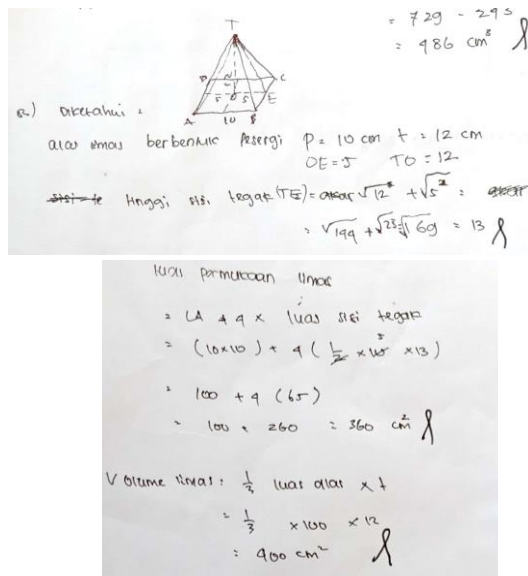 = 729 - 243
= 486 cm³
T
D
C
5
O
5
E
A
10
B
2.) Diketahui :
alas limas berbentuk Persegi P = 10 cm t = 12 cm
OE = 5 TO = 12
tinggi sisi tegak (TE) = akar √12² + √5² =
= √144 + √25 = √169 = 13
luas permukaan limas
= LA + 4 x luas sisi tegak
= (10x10) + 4 (½ x 10 x 13)
5
= 100 + 4 (65)
= 100 + 260 = 360 cm²
Volume limas : ⅓ luas alas x t
= ⅓ x 100 x 12
= 400 cm²